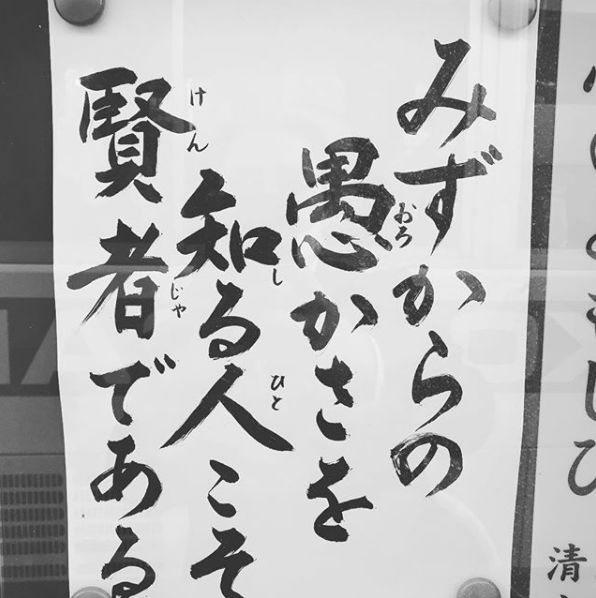 みずからの
愚かさを
知る人こそ
賢者である
おろ
し
ひと
けん
じゃ
清